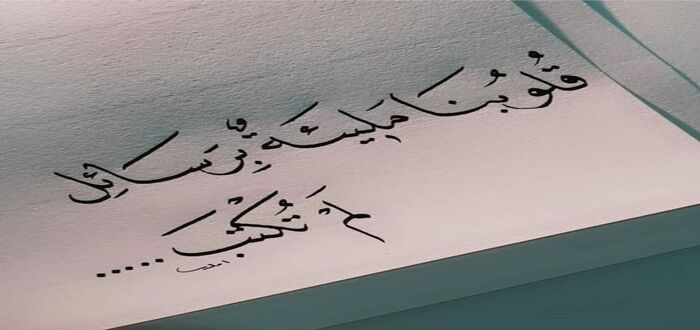 قُلُوبُنَا مَليئَه بِرَسَائِل
لَمْ تُكْتَب.....